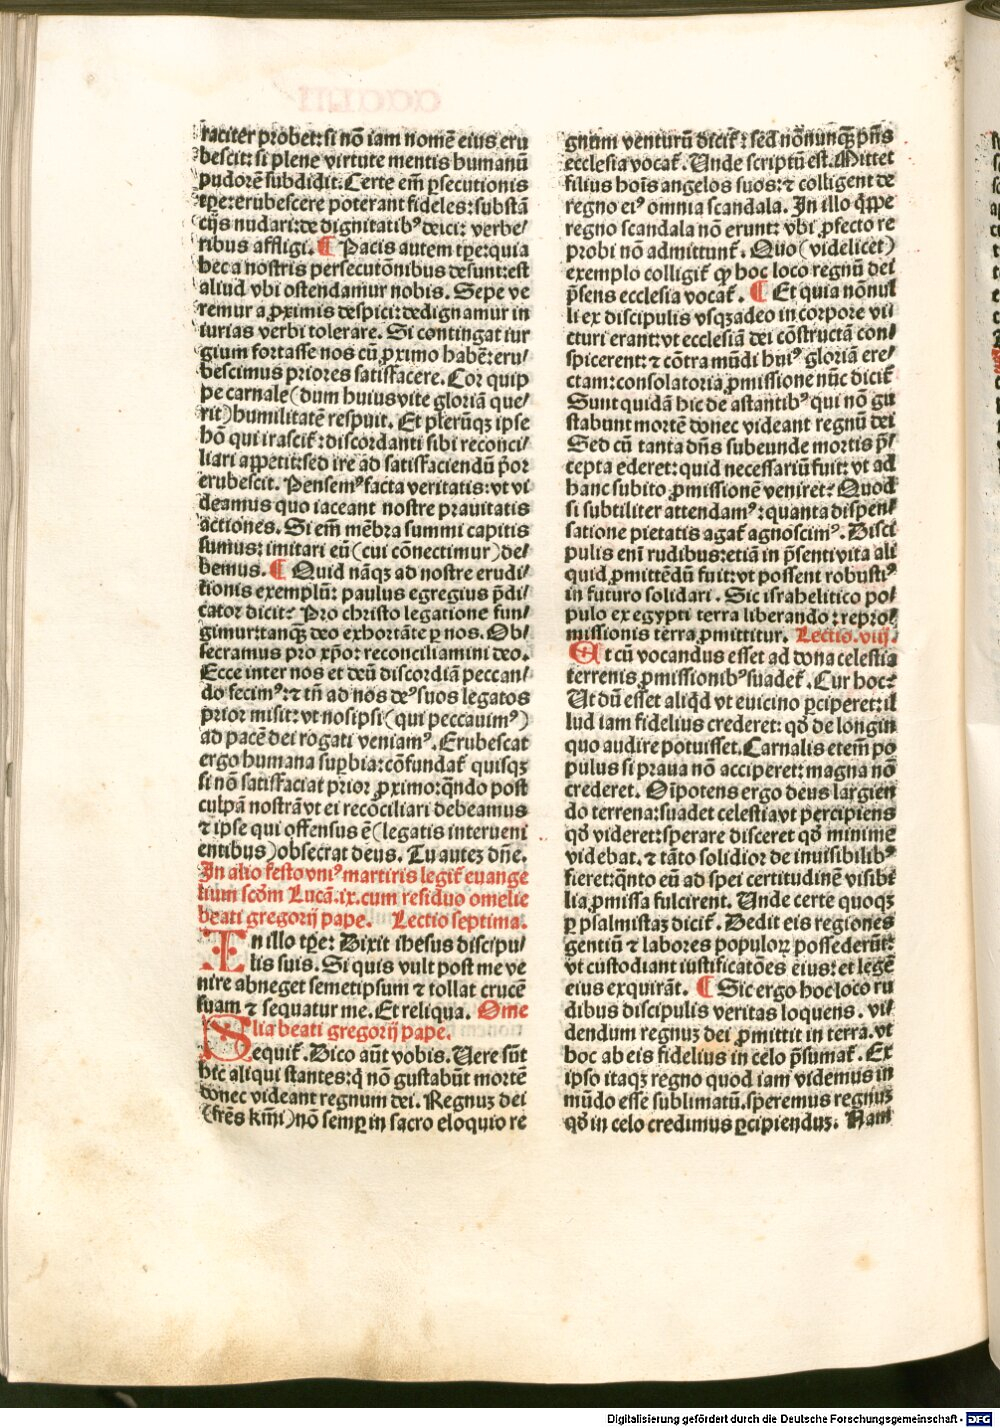 raciter probet: si nō iam nomē eius eru
bescit: si plene virtute mentis humanū
pudorē subdidit. Certe em̄ ꝑsecutionis
tꝑe: erubescere poterant fideles: substā
cijs nudari: de dignitatibꝰ deici: verbe/
ribus affligi. ¶ Pacis autem tꝑe: quia
hec a nostris persecutōnibus desunt: est
aliud vbi ostendamur nobis. Sepe ve
remur a ꝓximis despici: dedignamur in
iurias verbi tolerare. Si contingat iur
gium fortasse nos cū ꝓximo habēr: eru/
bescimus priores satisfacere. Cor quip
pe carnale (dum huius vite gloriā que/
rit) humilitatē respuit. Et pleꝝqꝫ ipse
hō qui irascit᷑: discordanti sibi reconci/
liari appetit: sed ire ad satisfaciendū p̄or
erubescit. Pensemꝰ facta veritatis: vt vi
deamus quo iaceant nostre prauitatis
actiones. Si em̄ mēbra summi capitis
sumus: imitari eū (cui cōnectimur) de/
bemus. ¶ Quid nāqꝫ ad nostre erudi/
tionis exemplū: paulus egregius p̄di/
cator dicit: Pro christo legatione fun/
gimur: tanqꝫ deo exhortāte ꝑ nos. Ob/
secramus pro xp̄o: reconciliamini deo.
Ecce inter nos et deū discordiā peccan/
do fecimꝰ: ⁊ tn̄ ad nos deꝰ suos legatos
prior misit: vt nos ipsi (qui peccauimꝰ)
ad pacē dei rogati veniamꝰ. Erubescat
ergo humana suꝑbia: cōfundat᷑ quisqꝫ
si nō satisfaciat prior ꝓximo: qn̄do post
culpā nostrā vt ei recōciliari debeamus
⁊ ipse qui offensus ē (legatis interueni
entibus) obsecrat deus. Tu autez dn̄e.
In alio festo vniꝰ martiris legit᷑ euange
lium scd̄m Lucā. ix. cum residuo omelie
beati gregorij pape. Lectio septima.
In illo tꝑe: Dixit ihesus discipu/
lis suis. Si quis vult post me ve
nire abneget semetipsum ⁊ tollat crucē
suam ⁊ sequatur me. Et reliqua. Ome
lia beati gregorij pape.
Sequit᷑. Dico aūt vobis. Uere sūt
hic aliqui stantes: q̇ nō gustabūt mortē
donec videant regnum dei. Regnuz dei
(frēs km̄i) nō semꝑ in sacro eloquio re
gnum venturū dicit᷑: sed nōnunqꝫ p̄ns
ecclesia vocat᷑. Unde scriptū est. Mittet
filius hoīs angelos suos: ⁊ colligent de
regno eiꝰ omnia scandala. In illo q̇ppe
regno scandala nō erunt: vbi ꝓfecto re
probi nō admittunt᷑. Quo (videlicet)
exemplo colligit᷑ ꝙ hoc loco regnū dei
p̄sens ecclesia vocat᷑. ¶ Et quia nōnul
li ex discipulis vsqꝫ adeo in corpore vi/
cturi erant: vt ecclesiā dei cōstructā con/
spicerent: ⁊ cōtra mūdi huiꝰ gloriā ere/
ctam: consolatoria ꝓmissione nūc dicit᷑
Sunt quidā hic de astantibꝰ qui nō gu
stabunt mortē donec videant regnū dei
Sed cū tanta dn̄s subeunde mortis p̄/
cepta ederet: quid necessariū fuit: vt ad
hanc subito ꝓmissionē veniret: Quod
si subtiliter attendamꝰ: quanta dispen/
satione pietatis agat᷑ agnoscimꝰ. Disci
pulis eni rudibus: etiā in p̄senti vita ali
quid ꝓmittēdū fuit: vt possent robustiꝰ
in futuro solidari. Sic israhelitico po/
pulo ex egypti terra liberando: repro/
missionis terra ꝓmittitur. Lectio. viij.
Et cū vocandus esset ad dona celestia
terrenis ꝓmissionibꝰ suadet᷑. Cur hoc:
Ut dū esset aliqd vt e uicino ꝑciperet: il
lud iam fidelius crederet: qđ de longin
quo audire potuisset. Carnalis etem̄ po
pulus si praua nō acciperet: magna nō
crederet. Oīpotens ergo deus largien
do terrena: suadet celestia vt percipiens
qđ videret: sperare disceret qđ minime
videbat. ⁊ tāto solidior de inuisibilibꝰ
fieret: qn̄to eū ad spei certitudinē visibi
lia ꝓmissa fulcirent. Unde certe quoqꝫ
ꝑ psalmistaꝫ dicit᷑. Dedit eis regiones
gentiū ⁊ labores populoꝝ possederūt:
vt custodiant iustificatōes eius: et legē
eius exquirāt. ¶ Sic ergo hoc loco ru
dibus discipulis veritas loquens. vi/
dendum regnuz dei ꝓmittit in terra. vt
hoc ab eis fidelius in celo p̄sumat᷑. Ex
ipso itaqꝫ regno quod iam videmus in
mūdo esse sublimatū. speremus regnuz
qđ in celo credimus ꝑcipienduz. Nam
Digitalisierung gefördert durch die Deutsche Forschungsgemeinschaft - DFG